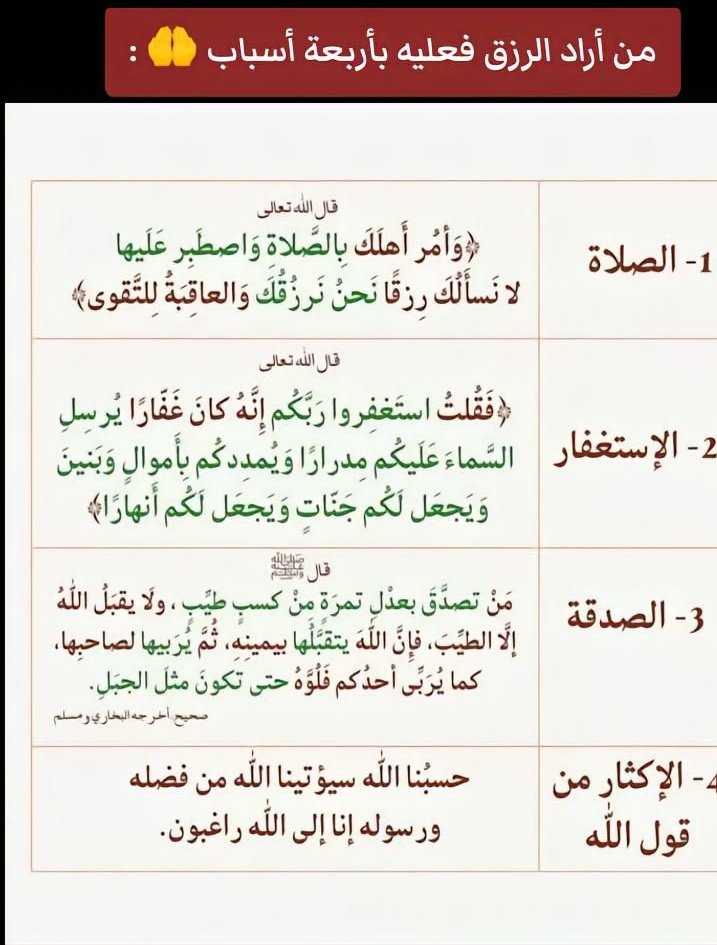 من أراد الرزق فعليه بأربعة أسباب 🤲 :
1- الصلاة
قال الله تعالى
﴿وَأمُر أَهلَكَ بِالصَّلاةِ وَاصطَبِر عَلَيها
لا نَسأَلُكَ رِزقًا نَحنُ نَرزُقُكَ وَالعاقِبَةُ لِلتَّقوى﴾
2- الإستغفار
قال الله تعالى
﴿فَقُلتُ استَغفِروا رَبَّكُم إِنَّهُ كانَ غَفّارًا يُرسِلِ
السَّماءَ عَلَيكُم مِدرارًا وَيُمدِدكُم بِأَموالٍ وَبَنينَ
وَيَجعَل لَكُم جَنّاتٍ وَيَجعَل لَكُم أَنهارًا﴾
3- الصدقة
قال ﷺ
مَنْ تصدَّقَ بعدْلِ تمرَةٍ مِنْ كسبٍ طيِّبٍ ، ولَا يقبَلُ اللهُ
إلَّا الطيِّبَ، فإنَّ اللهَ يتقبَّلُها بيمينِهِ، ثُمَّ يُرَبيها لصاحبِها،
كما يُرَبِّى أحدُكم فَلُوَّهُ حتى تكونَ مثلَ الجبَلِ.
صحيح أخرجه البخاري ومسلم
4- الإكثار من
قول الله
حسبُنا الله سيؤتينا الله من فضله
ورسوله إنا إلى الله راغبون.